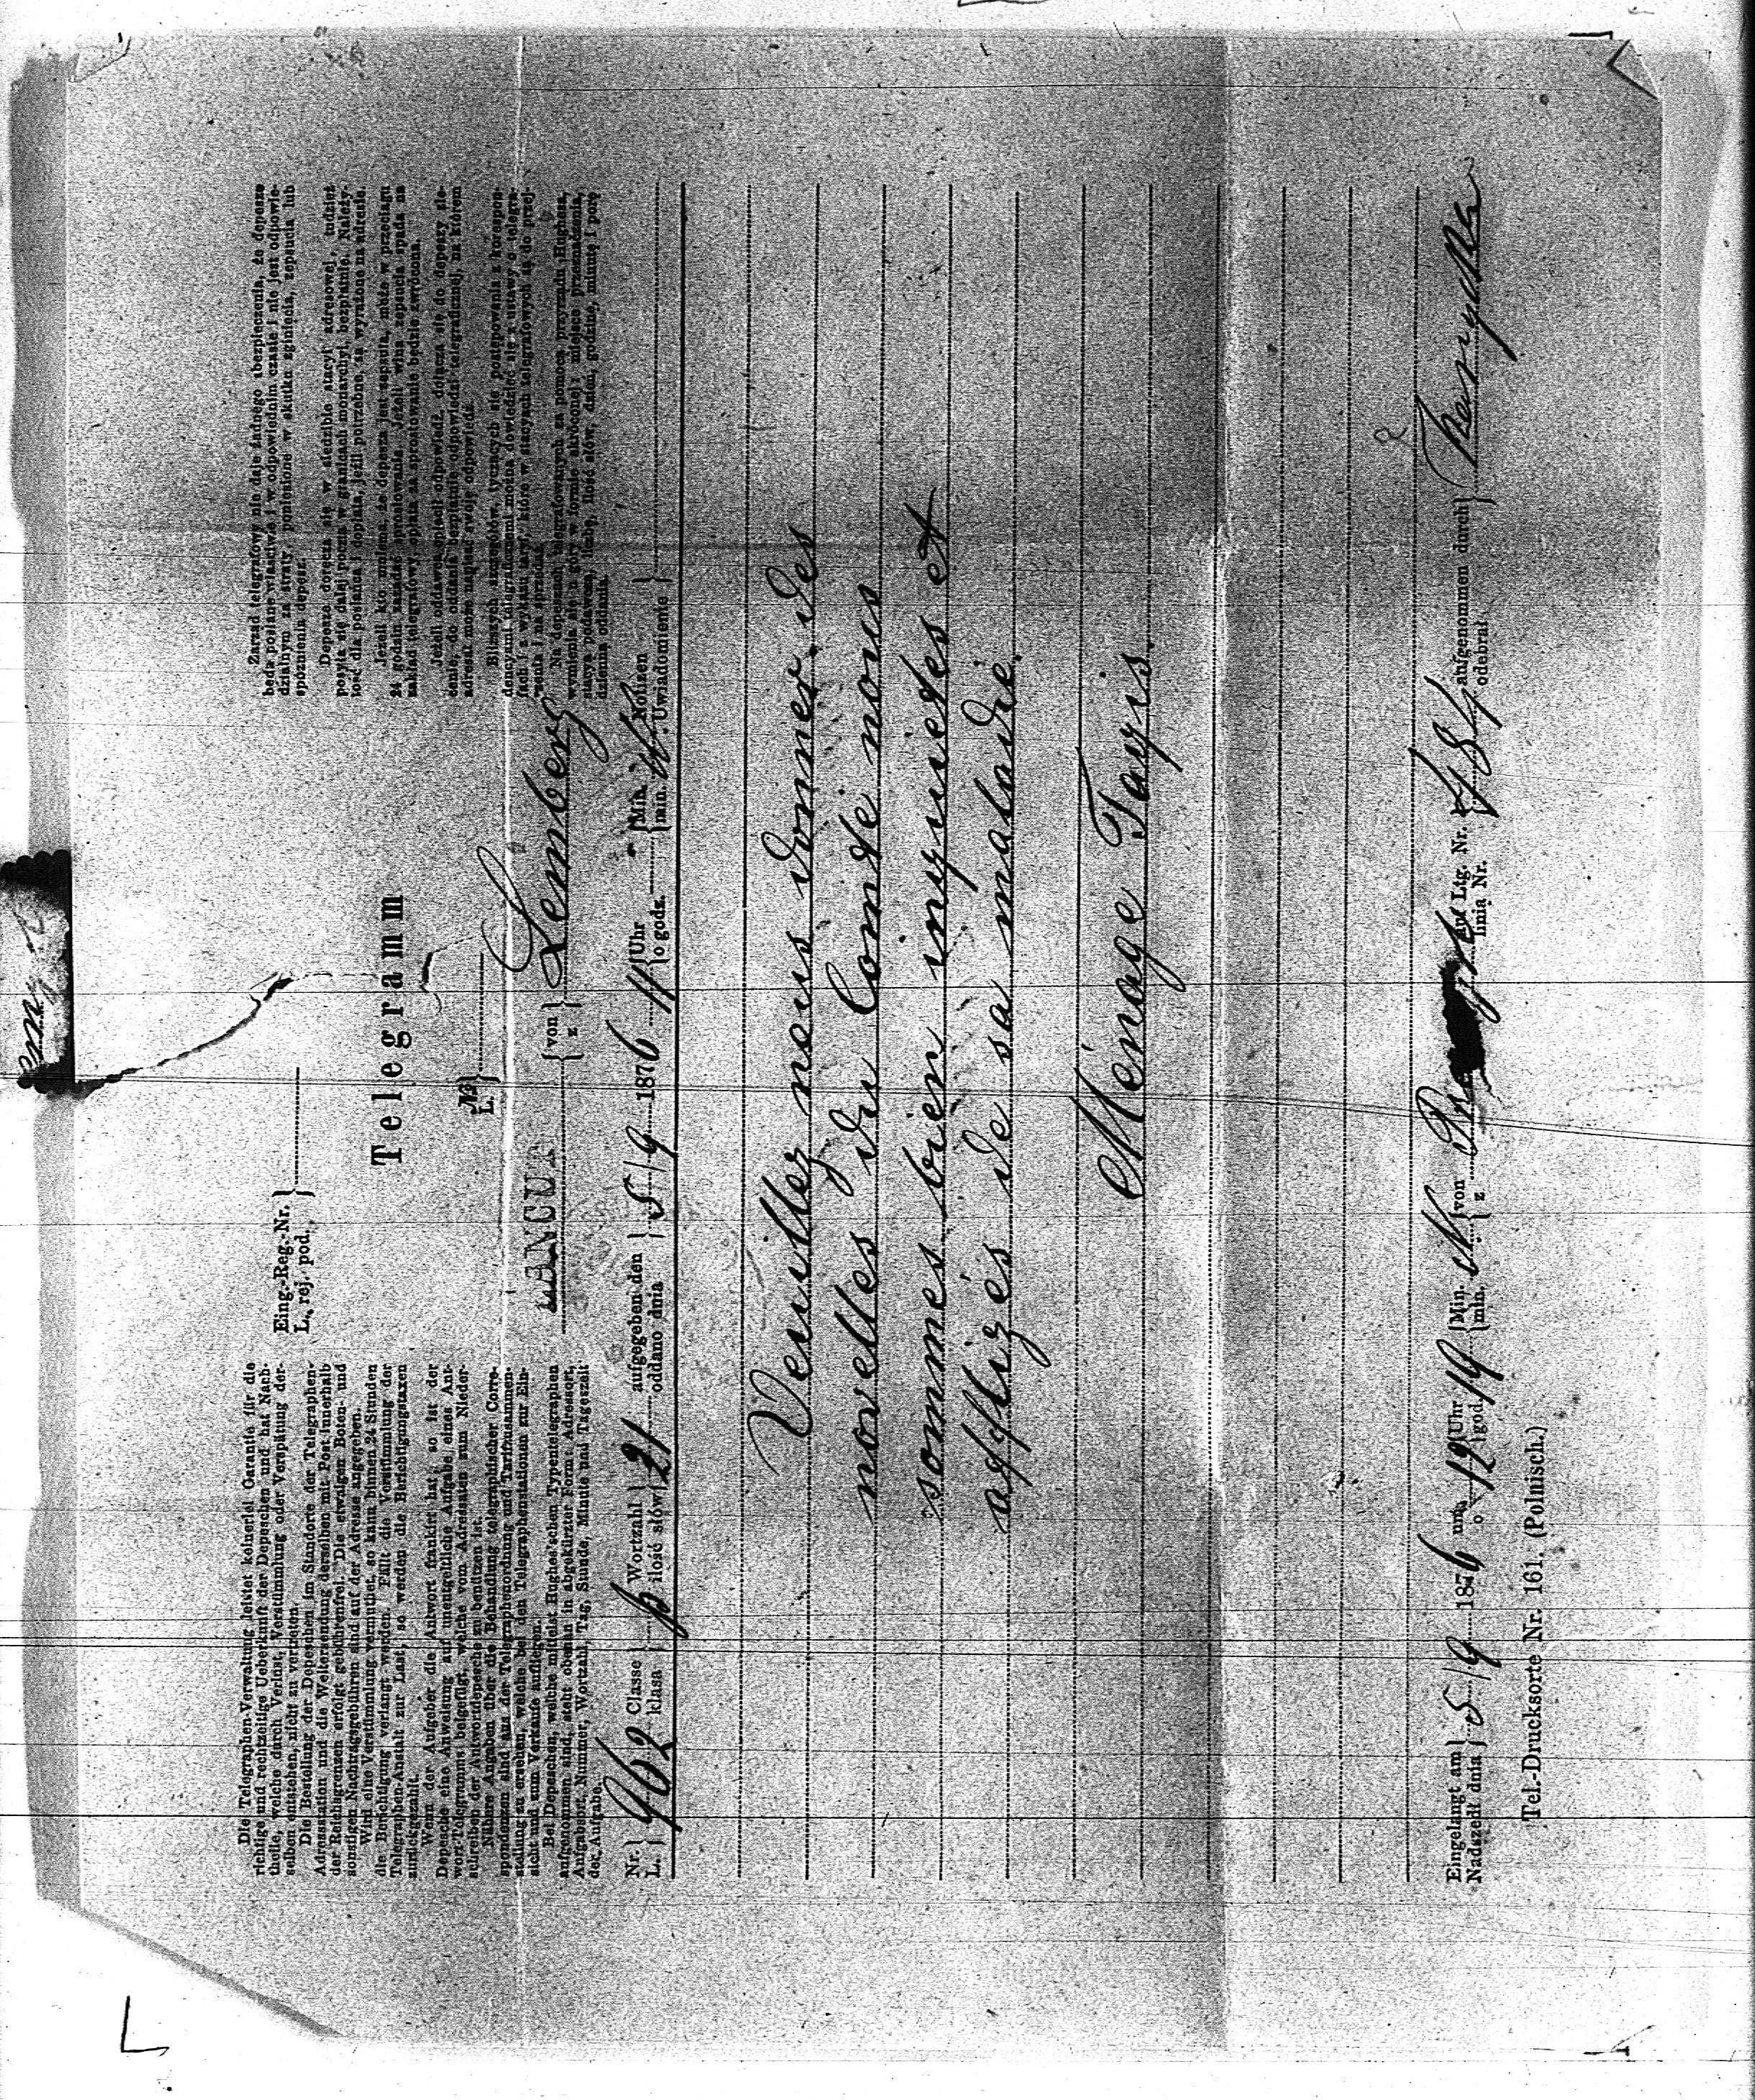 Die Telegraphen-Verwaltung leistet keinerlei Garantie für die
richtige und rechtzeitige Ueberkunft der Depeschen und hat Nach-
theile, welche durch Verlust, Verstümmlung oder Verspätung der-
selben entstehen, nicht zu vertreten.
Die Bestellung der Depeschen im Standorte der Telegraphen-
Adressstation und die Weitersendung derselben mit Post innerhalb
der Reichsgrenzen erfolgt gebührenfrei. Die etwaigen Boten- und
sonstigen Nachtragsgebühren sind auf der Adresse angegeben.
Wird eine Verstümmlung vermuthet, so kann binnen 24 Stunden
die Berichtigung verlangt werden. Fällt die Verstümmlung der
Telegraphen-Anstalt zur Last, so werden die Berichtigungstaxen
zurückgezahlt.
Wenn der Aufgeber die Antwort frankirt hat, so ist der
Depesche eine Anweisung auf unentgeltliche Aufgabe eines Ant-
wort-Telegramms beigefügt, welche vom Adressaten zum Nieder-
schreiben der Antwortdepesche zu benützen ist.
Nähere Angaben über die Behandlung telegraphischer Corre-
spondenzen sind aus der Telegraphenordnung und Tarifzusammen-
stellung zu ersehen, welche bei den Telegraphenstationen zur Ein-
sicht und zum Verkaufe aufliegen.
Bei Depeschen, welche mittelst Hughes'schen Typentelegraphen
aufgenommen sind, steht obenan in abgekürzter Form: Adressort,
Aufgabsort, Nummer, Wortzahl, Tag, Stunde, Minute und Tageszeit
der Aufgabe.
Eing.-Reg.-Nr.
L. rej. pod.
Telegramm
№
L.
ŁANCUT
von
z
Lemberg
Zarząd telegrafowy nie daje żadnego zbezpieczenia, że depesze
będą posłane właściwie i w odpowiednim czasie i nie jest odpowie-
dzialnym za straty, poniesione w skutku zginięcia, zepsucia lub
spóźnienia depesz.
Depesze doręcza się w siedzibie stacyi adresowej, tudzież
posyła się dalej pocztą w granicach monarchyi, bezpłatnie. Należy-
tość dla posłańca i dopłata, jeżli potrzebne, są wyrażone na adresie.
Jeżeli kto mniema, że depesza jest zepsuta, może w przeciągu
24 godzin zażądać sprostowania. Jeżeli wina zepsucia spada na
zakład telegrafowy, opłata za sprostowanie będzie zwrócona.
Jeżeli oddawca opłacił odpowiedź, dołącza się do depeszy zle-
cenie, do oddania bezpłatnie odpowiedzi telegraficznej, na którem
adresat może napisać swoję odpowiedź.
Bliższych szczegółów, tyczących się postępowania z korespon-
dencyami telegraficznemi można dowiedzieć się z ustawy o telegra-
fach i z wykazu taryf, które w stacyach telegrafowych są do przej-
rzenia i na sprzedaż.
Na depeszach telegrafowanych za pomocą przyrządu Hughesa,
wymienia się u góry w formie skróconej: miejsce przeznaczenia,
stacyą podawczą, liczbę, ilość słów, dzień, godzinę, minutę i porę
dzienną oddania.
Nr. L. 962 Classe klasa p Wortzahl ilość słów 21 aufgegeben den oddano dnia 5/9 1876 11 Uhr o godz. Min. min. Notizen Uwiadomienie
Veuillez nous donner des
novelles du Comte nous
sommes bien inquietes et
affligés de sa maladie.
Ménage Tayis.
Eingelangt am Nadszedł dnia 5/9 1876 um o 12 Uhr god. 19 Min. min. von z auf Ltg. Nr. linia Nr. 484 aufgenommen durch odebrał
Tel.-Drucksorte Nr. 161. (Polnisch.)